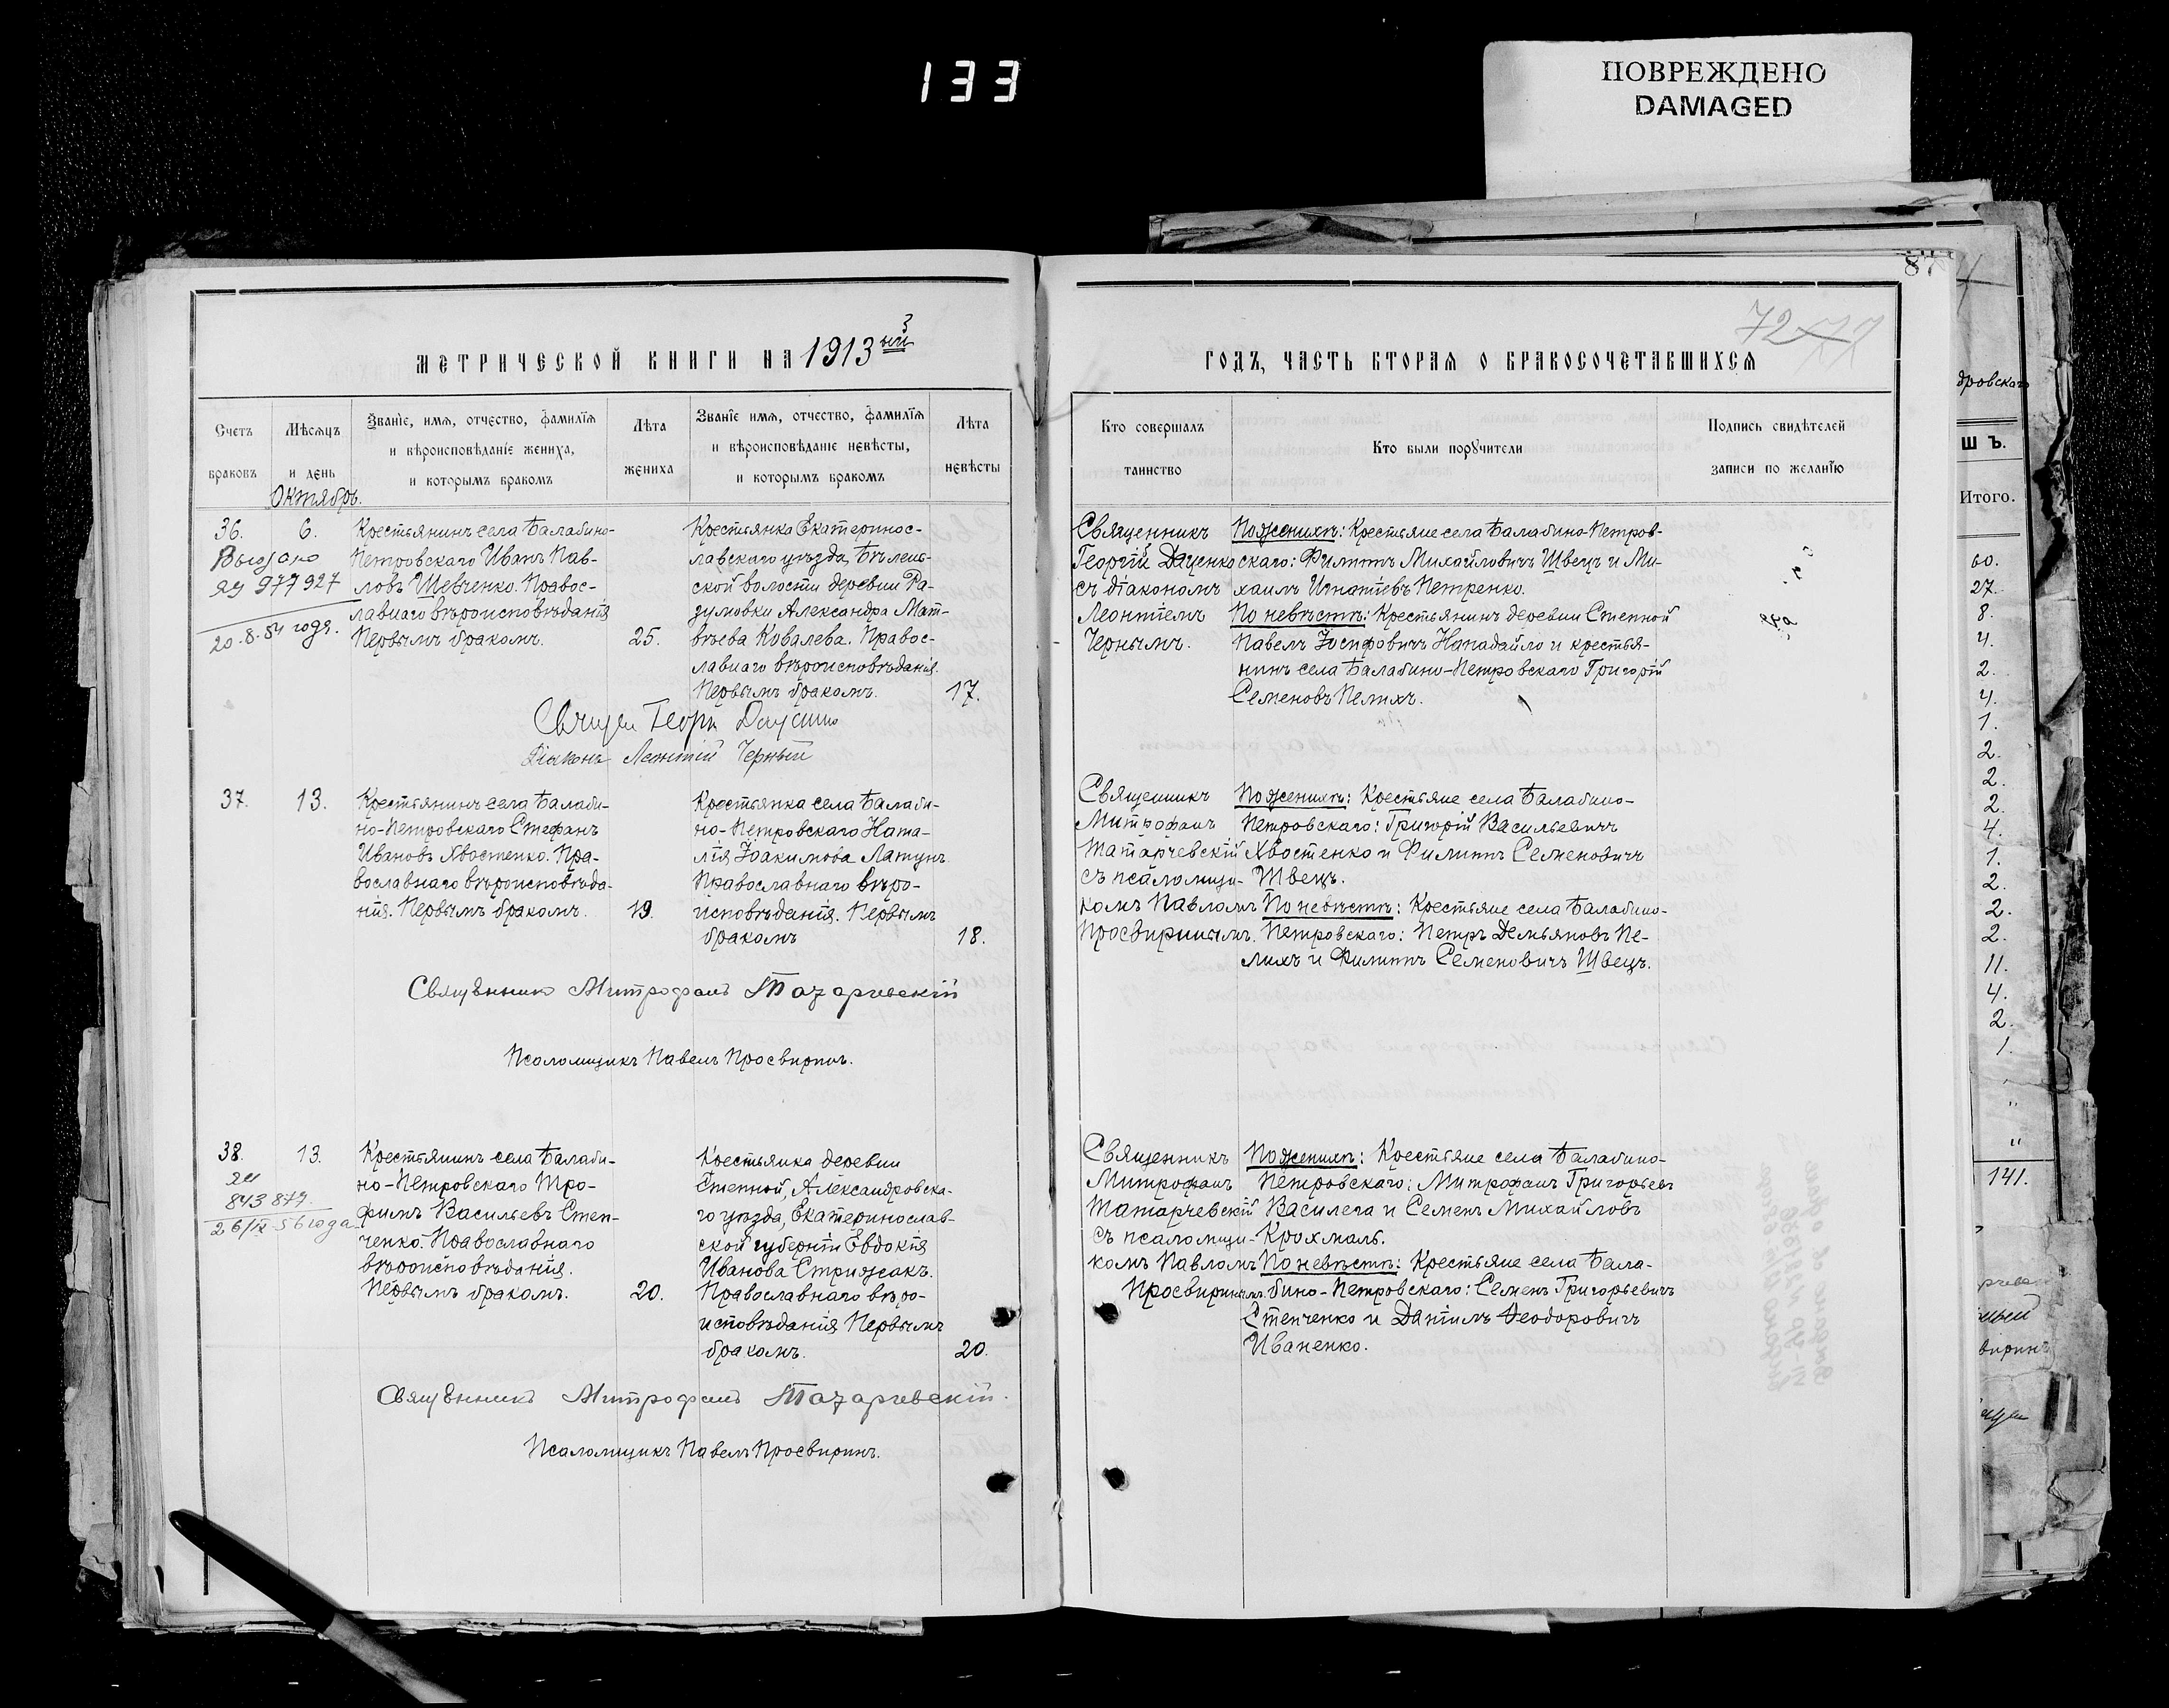 133
ПОВРЕЖДЕНО
DAMAGED
87
72
МЕТРИЧЕСКОЙ КНИГИ НА 1913 ый
3
ГОДЪ, ЧАСТЬ ВТОРАЯ О БРАКОСОЧЕТАВШИХСЯ
Счетъ
браковъ
Мѣсяцъ
и день
Званіе, имя, отчество, фамилія
и вѣроисповѣданіе жениха,
и которымъ бракомъ
Лѣта
жениха
Званіе имя, отчество, фамилія
и вѣроисповѣданіе невѣсты,
и которымъ бракомъ
Лѣта
невѣсты
Кто совершалъ
таинство
Кто были поручители
Подпись свидѣтелей
записи по желанію
Октябрь.
36.
6.
977927
20.8.54 года.
Крестьянинъ села Балабино-
Петровскаго Иванъ Пав-
ловъ Шевченко. Правос-
лавнаго вѣроисповѣданія
Первымъ бракомъ.
25.
Крестьянка Екатеринос-
лавскаго уѣзда, Бѣлень-
ской волости деревни Ра-
думовки Александра Мат-
вѣева Ковалева. Правос-
лавнаго вѣроисповѣданія.
Первымъ бракомъ.
17.
Священникъ
Георгій Даценко
съ діакономъ
Леонтіемъ
Чернымъ.
По женихѣ: Крестьяне села Балабино-Петров-
скаго: Филиппъ Михайловичъ Швецъ и Ми-
хаилъ Игнатіевъ Петренко.
По невѣстѣ: Крестьянинъ деревни Степной
Павелъ Іосифовичъ Нападайло и крестья-
нинъ села Балабино-Петровскаго Григорій
Семеновъ Пелихъ.
Діаконъ Леонтій Черный
37.
13.
Крестьянинъ села Балаби-
но-Петровскаго Стефанъ
Ивановъ Хвостенко. Пра-
вославнаго вѣроисповѣда-
нія. Первымъ бракомъ.
19.
Крестьянка села Балаби-
но-Петровскаго Ната-
лія Іоакимова Лапунъ
Православнаго вѣро-
исповѣданія. Первымъ
бракомъ
18.
Священникъ
Митрофанъ
Татарчевскій
съ псаломщи-
комъ Павломъ
Просвиринымъ.
По женихѣ: Крестьяне села Балабино-
Петровскаго: Григорій Васильевичъ
Хвостенко и Филиппъ Семеновичъ
Швецъ.
По невѣстѣ: Крестьяне села Балабино-
Петровскаго: Петръ Демьяновъ Пе-
лихъ и Филиппъ Семеновичъ Швецъ.
Священникъ Митрофанъ Татарчевскій
Псаломщикъ Павелъ Просвиринъ.
38.
13.
843879
26/IX-56 года
Крестьянинъ села Балаби-
но-Петровскаго Тро-
фимъ Васильевъ Степ-
ченко. Православнаго
вѣроисповѣданія.
Первымъ бракомъ.
20.
Крестьянка деревни
Степной, Александровска-
го уѣзда, Екатеринослав-
ской губерніи Евдокія
Иванова Стрижакъ.
Православнаго вѣро-
исповѣданія Первымъ
бракомъ.
20.
Священникъ
Митрофанъ
Татарчевскій
съ псаломщи-
комъ Павломъ
Просвиринымъ.
По женихѣ: Крестьяне села Балабино-
Петровскаго: Митрофанъ Григорьевъ
Василега и Семенъ Михайловъ
Крохмаль.
По невѣстѣ: Крестьяне села Бала-
бино-Петровскаго: Семенъ Григорьевичъ
Степченко и Даніилъ Ѳеодоровичъ
Иваненко.
Священникъ Митрофанъ Татарчевскій.
Псаломщикъ Павелъ Просвиринъ.
дровскаго
шъ.
Итого.
60.
27.
8.
4.
2.
4.
1.
2.
2.
2.
4.
1.
2.
2.
2.
11.
4.
2.
1.
"
"
141.